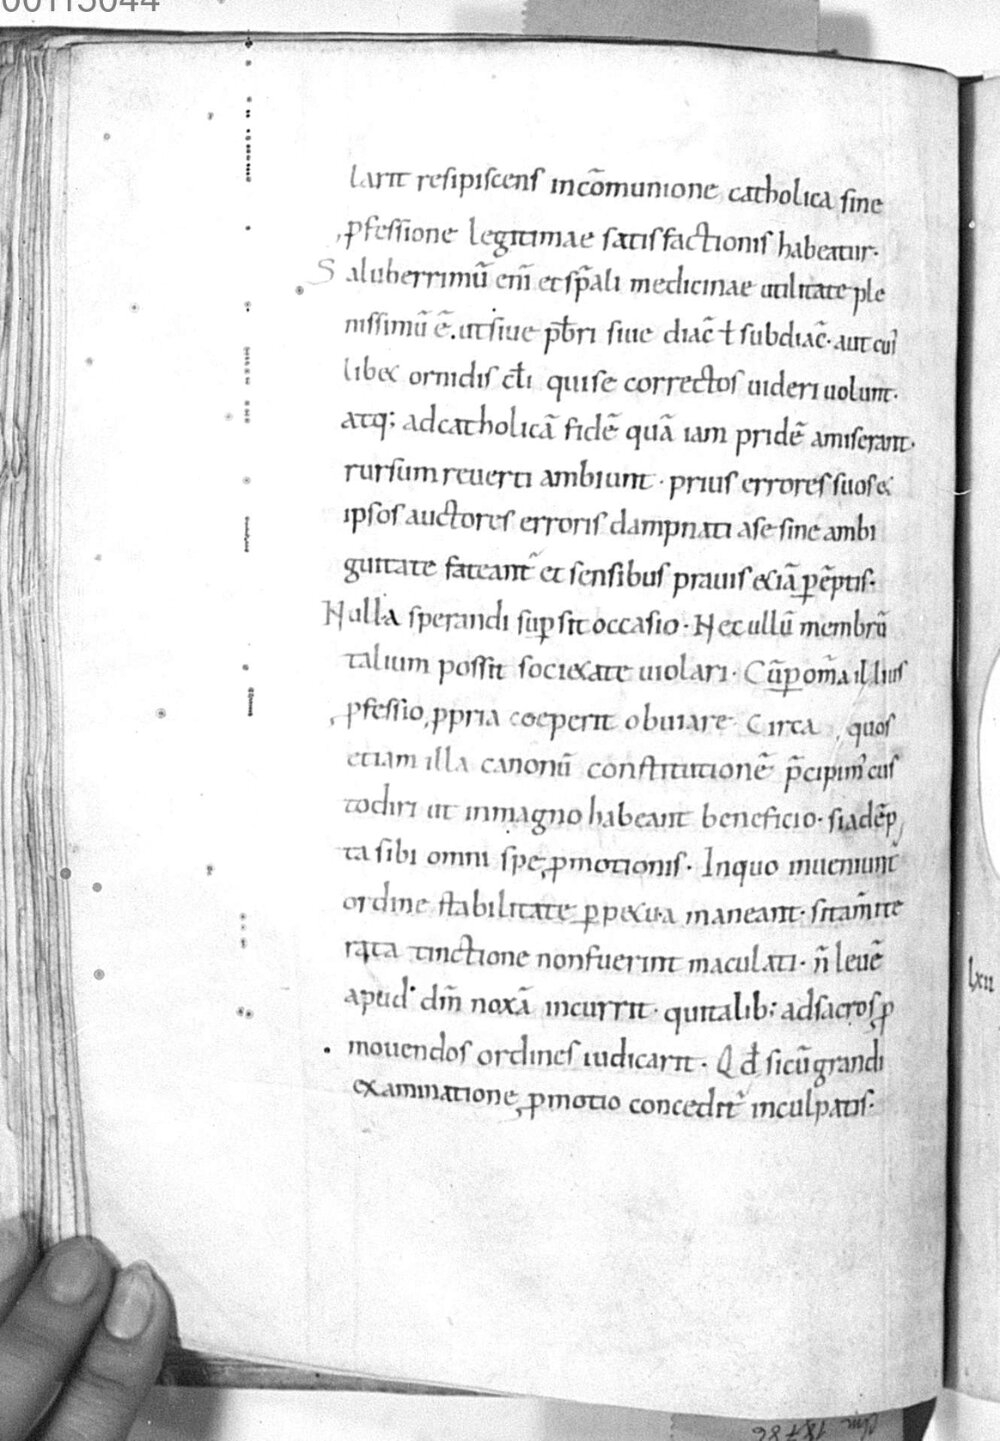 00115044
larit resipiscens incōmunione catholica sine
ꝓfessione legitimae satisfactionis habeatur·
Saluberrimū eni᷈ et sp̄ali medicinae utilitate ple
nissimū ē. ut siue pb̄ri siue diac̄ ł subdiac̄· aut cui᷈
libet ordinis cl̄i quise correctos uideri uolunt·
atq; adcatholicā fidē quā iam pridē amiserant·
rursum reuerti ambiunt· prius errores suos &
ipsos auctores erroris dampnati ase sine ambi
guitate fateant᷈ et sensibus prauis &iā ꝑēptis·
Nulla sperandi supsit occasio· Nec ullū membrū
talium possit soci&ate uiolari· Cū ꝑ om̄a illius
ꝓfessio ꝓpria coeperit obuiare Circa quos
etiam illa canonū constitutionē p̄cipim᷈ cus
todiri ut inmagno habeant beneficio· siadēp
ta sibi omni spe ꝓmotionis· Inquo inueniunt᷈
ordine stabilitate ꝑp&ua maneant· sitam̄ ite
rata tinctione nonfuerint maculati· n̄ leuē
apud dm̄ noxā incurrit· quitalib; adsacros ꝓ
mouendos ordines iudicarit· Qd̄ sicū grandi
examinatione ꝓmotio concedit᷈ inculpatis·
lxii
Clm 18786